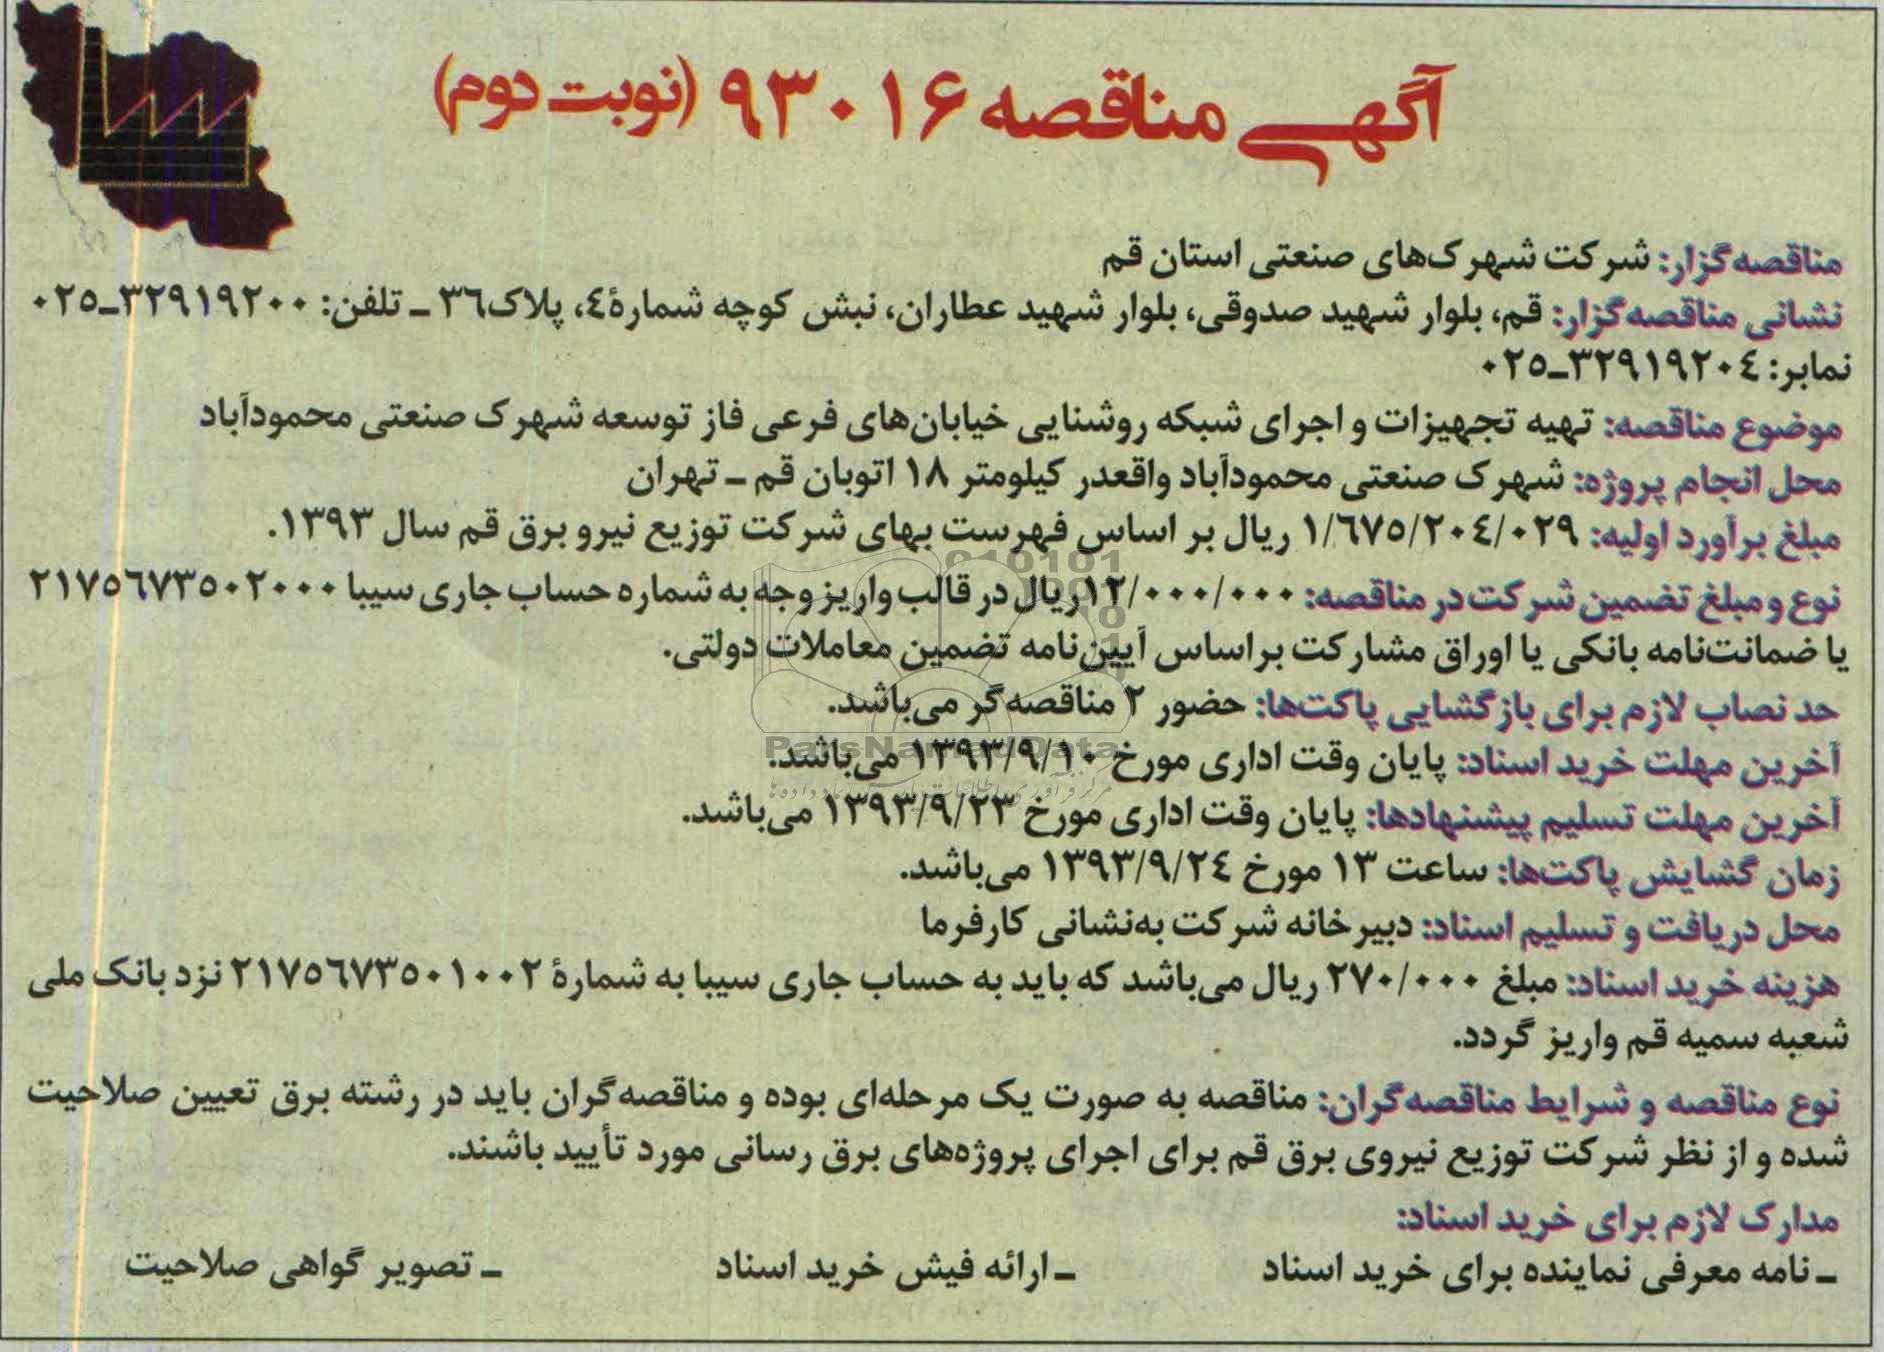 آگهی مناقصه ۹۳۰۱۶ (نوبت دوم)
مناقصه‌گزار: شرکت شهرک‌های صنعتی استان قم
نشانی مناقصه‌گزار: قم، بلوار شهید صدوقی، بلوار شهید عطاران، نبش کوچه شمارهٔ ٤، پلاک ٣٦ ـ تلفن: ٣٢٩١٩٢٠٠ـ٠٢٥
نمابر: ٣٢٩١٩٢٠٤ـ٠٢٥
موضوع مناقصه: تهیه تجهیزات و اجرای شبکه روشنایی خیابان‌های فرعی فاز توسعه شهرک صنعتی محمودآباد
محل انجام پروژه: شهرک صنعتی محمودآباد واقعدر کیلومتر ١٨ اتوبان قم ـ تهران
مبلغ برآورد اولیه: ١/٦٧٥/٢٠٤/٠٢٩ ریال بر اساس فهرست بهای شرکت توزیع نیرو برق قم سال ١٣٩٣.
نوع و مبلغ تضمین شرکت در مناقصه: ١٢/٠٠٠/٠٠٠ریال در قالب واریز وجه به شماره حساب جاری سیبا ٢١٧٥٦٧٣٥٠٢٠٠٠
یا ضمانت‌نامه بانکی یا اوراق مشارکت براساس آیین‌نامه تضمین معاملات دولتی.
حد نصاب لازم برای بازگشایی پاکت‌ها: حضور ٢ مناقصه‌گر می‌باشد.
آخرین مهلت خرید اسناد: پایان وقت اداری مورخ ١٣٩٣/٩/١٠ می‌باشد.
ParsNamadData
آخرین مهلت تسلیم پیشنهادها: پایان وقت اداری مورخ ١٣٩٣/٩/٢٣ می‌باشد.
زمان گشایش پاکت‌ها: ساعت ١٣ مورخ ١٣٩٣/٩/٢٤ می‌باشد.
محل دریافت و تسلیم اسناد: دبیرخانه شرکت به‌نشانی کارفرما
هزینه خرید اسناد: مبلغ ٢٧٠/٠٠٠ ریال می‌باشد که باید به حساب جاری سیبا به شمارهٔ ٢١٧٥٦٧٣٥٠١٠٠٢ نزد بانک ملی
شعبه سمیه قم واریز گردد.
نوع مناقصه و شرایط مناقصه‌گران: مناقصه به صورت یک مرحله‌ای بوده و مناقصه‌گران باید در رشته برق تعیین صلاحیت
شده و از نظر شرکت توزیع نیروی برق قم برای اجرای پروژه‌های برق رسانی مورد تأیید باشند.
مدارک لازم برای خرید اسناد:
ـ نامه معرفی نماینده برای خرید اسناد ـ ارائه فیش خرید اسناد ـ تصویر گواهی صلاحیت